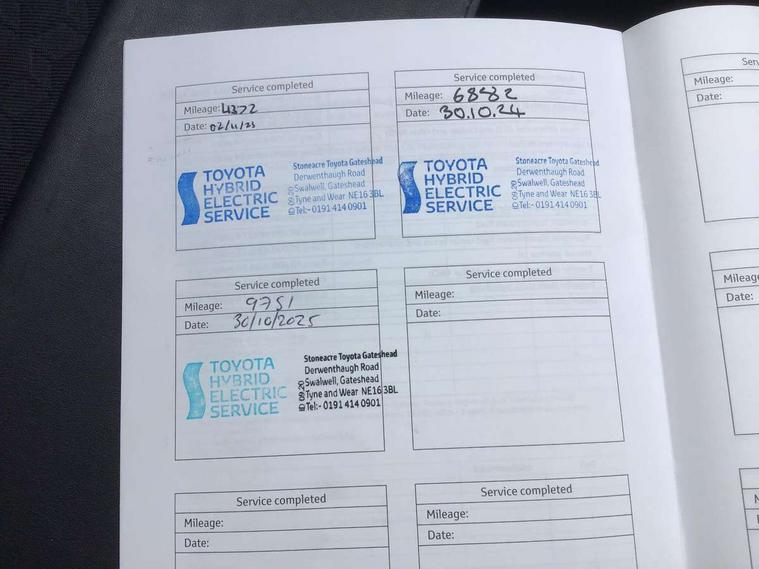 Service completed
Mileage: 4372
Date: 02/11/23
TOYOTA
HYBRID
ELECTRIC
SERVICE
Stoneacre Toyota Gateshead
Derwenthaugh Road
Swalwell, Gateshead
Tyne and Wear NE16 3BL
Tel:- 0191 414 0901
Service completed
Mileage: 6882
Date: 30.10.24
TOYOTA
HYBRID
ELECTRIC
SERVICE
Stoneacre Toyota Gateshead
Derwenthaugh Road
Swalwell, Gateshead
Tyne and Wear NE16 3BL
Tel:- 0191 414 0901
Ser
Mileage:
Date:
Service completed
Mileage: 9751
Date: 30/10/2025
TOYOTA
HYBRID
ELECTRIC
SERVICE
Stoneacre Toyota Gateshead
Derwenthaugh Road
Swalwell, Gateshead
Tyne and Wear NE16 3BL
Tel:- 0191 414 0901
09.20
Service completed
Mileage:
Date:
Mileag
Date:
Service completed
Mileage:
Date:
Service completed
Mileage:
Date: